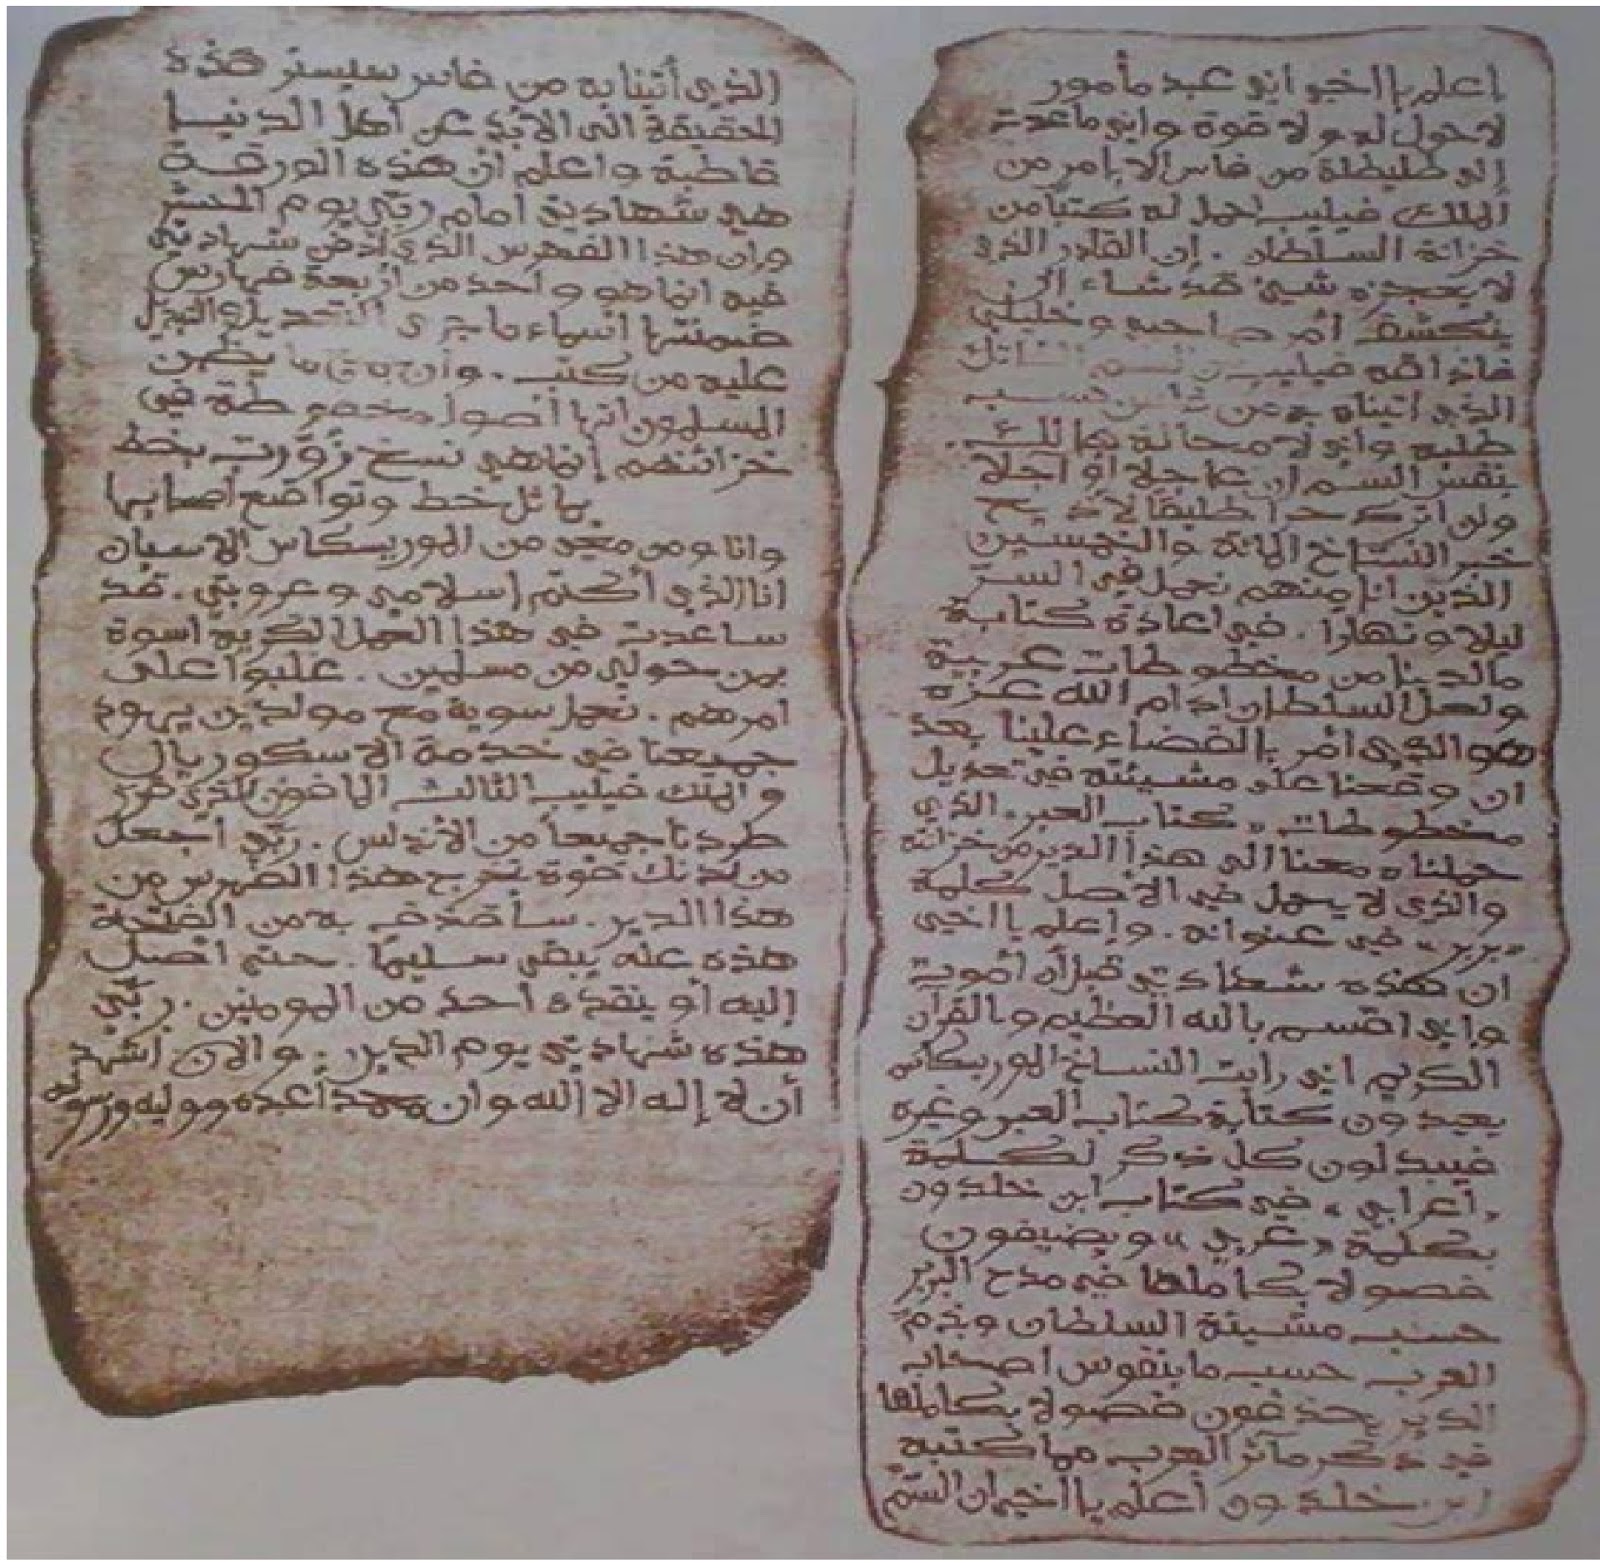 إعلم يا اخي اني عبد مأمور
لا حول له ولا قوة واني ما عدت
إلى طليطلة من فاس الا بامر من
الملك فيليب احمل له كتبا من
خزانة السلطان . إن القادر الذي
لا يعجزه شيئ قد شاء ان
ينكشف أمر صاحبه وخليلي
فاذاقه فيليب من السم القاتل
الذي اتيناه به من فاس حسب
طلبه واني لا محالة هالك
بنفس السم ان عاجلا او اجلا
ولن اترك حرا طليقا لأذيع
خبر النساخ المائة والخمسين
الذين انا منهم نعمل في السر
ليلا ونهارا . في اعادة كتابة
ما لدينا من مخطوطات عربية
ولعل السلطان ادام الله عزه
هو الذي امر بالقضاء علينا بعد
ان وقعنا على مشيئته في تعديل
مخطوطات « كتاب العبر . الذي
حملناه معنا الى هذا الدير من خزانته
والذي لا يحمل في الاصل كلمة
« بربر » في عنوانه . وإعلم يا اخي
ان هذه شهادتي قبل أن أموت
واني اقسم بالله العظيم وبالقرآن
الكريم اني رايت النساخ الموريكانه
يعيدون كتابة كتاب العبر وغيره
فيبدلون كل ذكر لكلمة
« أعرابي » في كتاب ابن خلدون
بكلمة « عربي » ويضيفون
فصولا بكاملها في مدح البربر
حسب مشيئة السلطان وبذم
العرب حسب ما بنفوس اصحاب
الدير يحذفون فصولا بكاملها
في ذكر مآثر العرب مما كتبه
ابن خلدون أعلم يا اخي ان السم
الذي أتينا به من فاس سيستر هذه
الحقيقة الى الأبد عن أهل الدنيا
قاطبة واعلم ان هذه الورقة
هي شهادتي امام ربي يوم الحشر
وان هذا الفهرس الذي أدس شهادتي
فيه انما هو واحد من أربعة فهارس
ضمنتها اسماء ما جرى التعديل والتبديل
عليه من كتب . وان ما يظن
المسلمون انها أصول مخطوطة في
خزائنهم إنما هي نسخ زورت بخط
يماثل خط وتواقيع أصحابها
وانا ومن معي من الموريسكاس الاسبان
انا الذي أكتم إسلامي وعروبتي . قد
ساعدت في هذا العمل الكريه اسوة
بمن حولي من مسلمين . غلبوا على
امرهم . نعمل سوية مع مولدين يهود
جميعنا في خدمة الاسكوريال
والملك فيليب الثالث المأفون الذي قرر
طردنا جميعا من الأندلس . ربي اجعل
من لدنك قوة تخرج هذا الفهرس من
هذا الدير . سأقذف به من الفتحة
هذه عله يبقى سليما . حتى اصل
إليه أو ينقذه احد من المومنين . ربي
هذه شهادتي يوم الدين . والان اشهد
أن لا إله الا الله وان محمدا عبده ووليه ورسوله